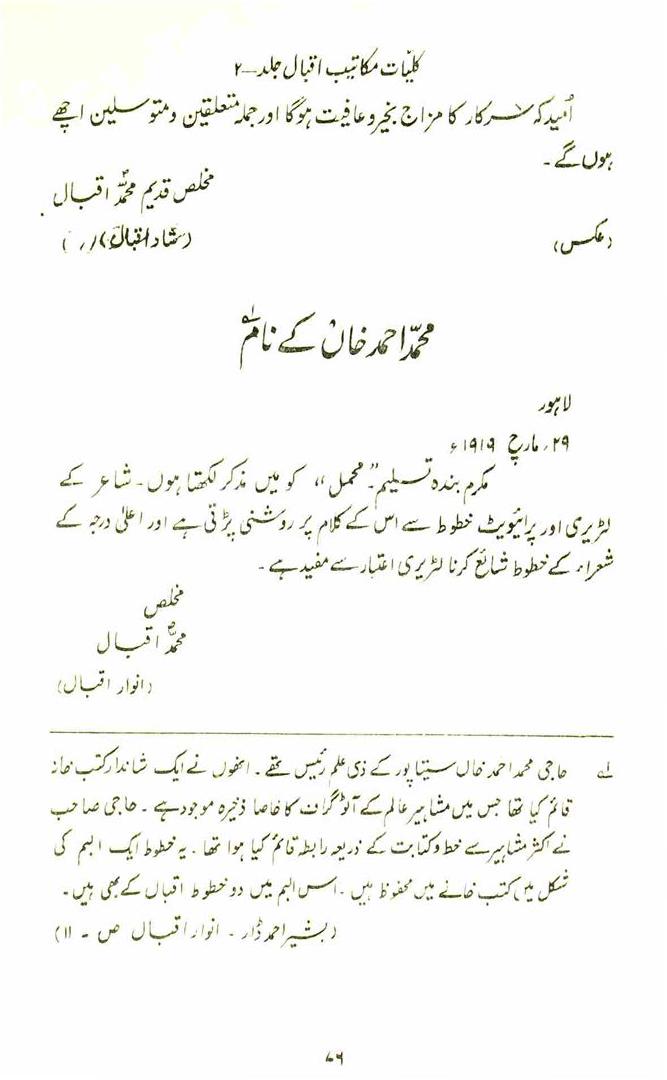 کلیات مکاتیب اقبال جلد-۲
اُمید کہ سرکار کا مزاج بخیر و عافیت ہوگا اور جملہ متعلقین و متوسلین اچھے
ہوں گے۔
مخلص قدیم محمدؐ اقبال
(عکس)
(شاد اقبال)
محمدّ احمد خاں کے نام لہ
لاہور
۲۹؍ مارچ ۱۹۱۹ء
مکرم بندہ تسلیم۔ ”محمل“ کو میں مذکر لکھتا ہوں۔ شاعر کے
لٹریری اور پرائیویٹ خطوط سے اس کے کلام پر روشنی پڑتی ہے اور اعلیٰ درجہ کے
شعراء کے خطوط شائع کرنا لٹریری اعتبار سے مفید ہے۔
مخلص
محمدؐ اقبال
(انوار اقبال)
لہ حاجی محمد احمد خاں سیتاپور کے ذی علم رئیس تھے۔ انھوں نے ایک شاندار کتب خانہ
قائم کیا تھا جس میں مشاہیر عالم کے آٹوگراف کا خاصا ذخیرہ موجود ہے۔ حاجی صاحب
نے اکثر مشاہیر سے خط و کتابت کے ذریعہ رابطہ قائم کیا ہوا تھا۔ یہ خطوط ایک البم کی
شکل میں کتب خانے میں محفوظ ہیں۔ اس البم میں دو خطوط اقبال کے بھی ہیں۔
(بشیر احمد ڈار۔ انوار اقبال ص - ۱۱)